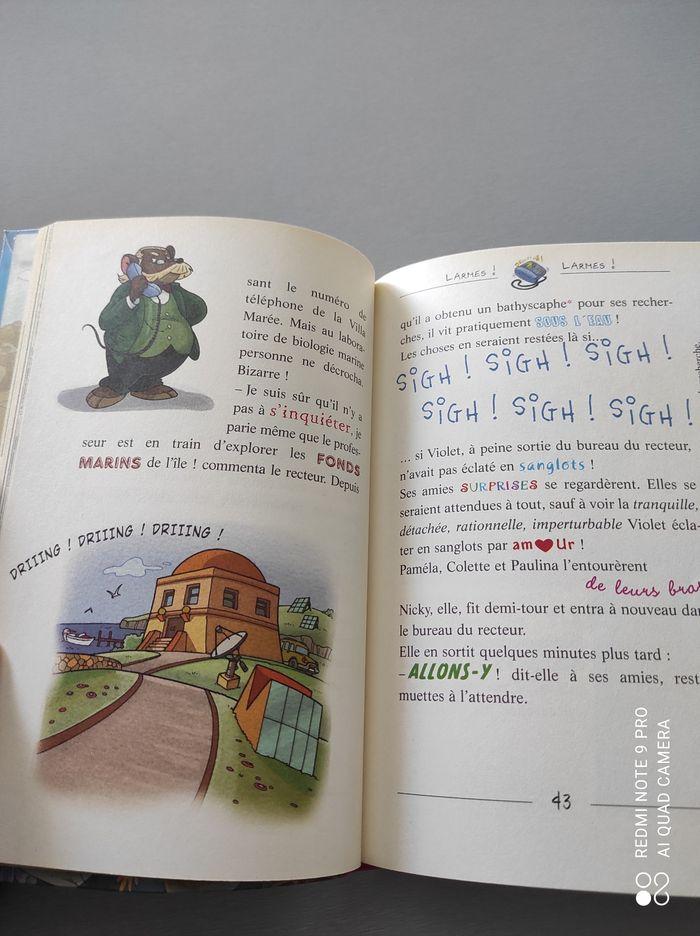 sant le numéro de
téléphone de la Villa
Marée. Mais au labora-
toire de biologie marine
personne ne décrocha.
Bizarre !
– Je suis sûr qu'il n'y a
pas à s'inquiéter, je
parie même que le profes-
seur est en train d'explorer les FONDS
MARINS de l'île ! commenta le recteur. Depuis
DRIIING ! DRIIING ! DRIIING !
LARMES ! LARMES !
qu'il a obtenu un bathyscaphe* pour ses recher-
ches, il vit pratiquement SOUS L'EAU !
Les choses en seraient restées là si...
SIGH ! SIGH ! SIGH !
SIGH ! SIGH ! SIGH !
... si Violet, à peine sortie du bureau du recteur,
n'avait pas éclaté en sanglots !
Ses amies SURPRISES se regardèrent. Elles se
seraient attendues à tout, sauf à voir la tranquille,
détachée, rationnelle, imperturbable Violet écla-
ter en sanglots par am♥Ur !
Paméla, Colette et Paulina l'entourèrent
de leurs bras
Nicky, elle, fit demi-tour et entra à nouveau dan
le bureau du recteur.
Elle en sortit quelques minutes plus tard :
– ALLONS-Y ! dit-elle à ses amies, rest
muettes à l'attendre.
43
REDMI NOTE 9 PRO
AI QUAD CAMERA